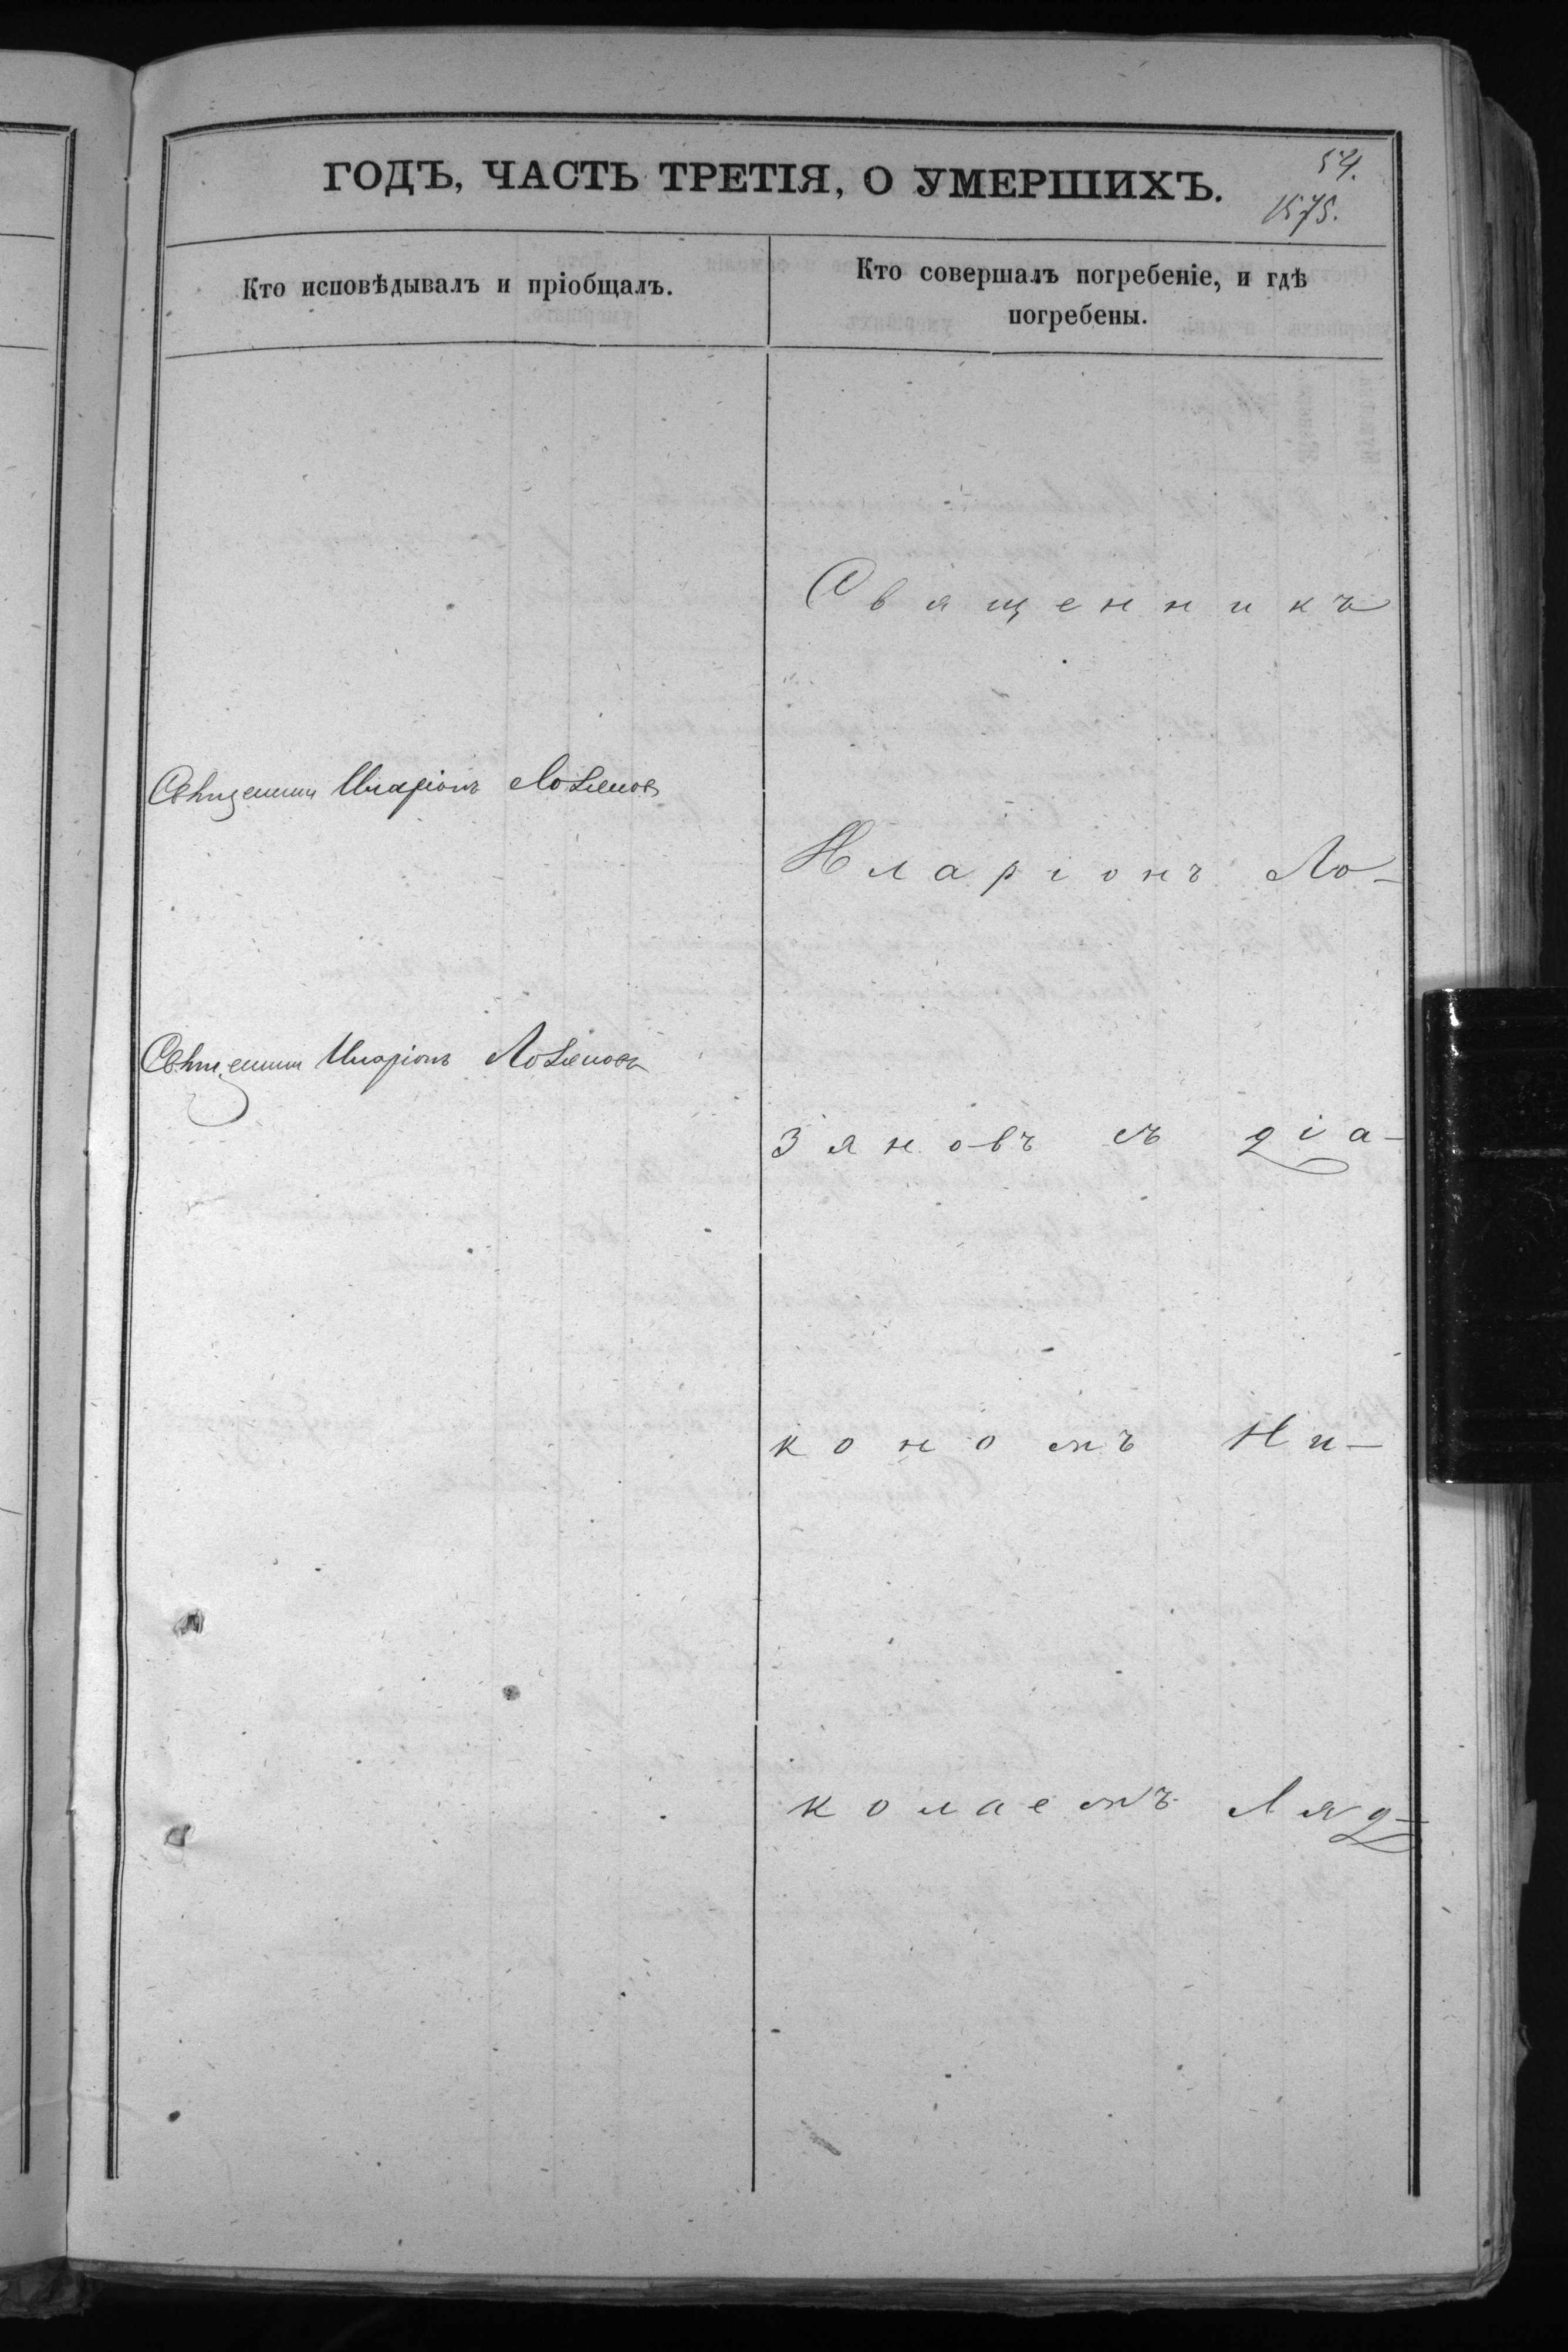 ГОДЪ, ЧАСТЬ ТРЕТІЯ, О УМЕРШИХЪ.
54.
1575.
Кто исповѣдывалъ и пріобщалъ.
Кто совершалъ погребеніе, и гдѣ
погребены.
Священникъ
Священник Иларіонъ Лозянов
Иларіонъ Ло-
Священник Иларіонъ Лозяновъ
зяновъ съ діа-
кономъ Ни-
колаемъ Ляд-